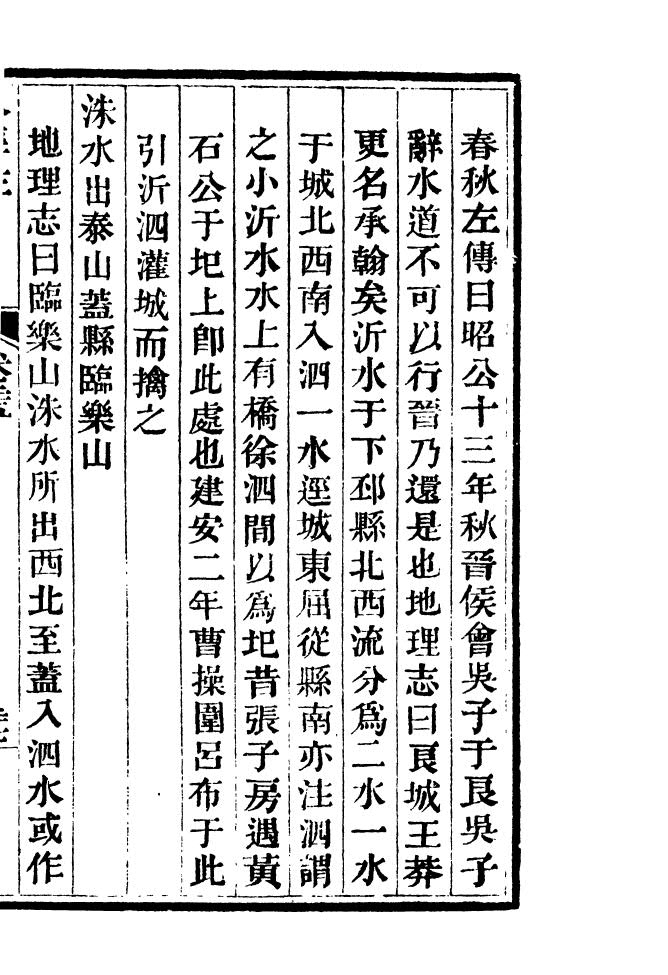 春秋左傳曰昭公十三年秋晉侯會吳子于良吳子
辭水道不可以行晉乃還是也地理志曰良城王莽
更名承翰矣沂水于下邳縣北西流分爲二水一水
于城北西南入泗一水逕城東屈從縣南亦注泗謂
之小沂水水上有橋徐泗間以爲圯昔張子房遇黃
石公于圯上卽此處也建安二年曹操圍呂布于此
引沂泗灌城而擒之
洙水出泰山蓋縣臨樂山
地理志曰臨樂山洙水所出西北至蓋入泗水或作